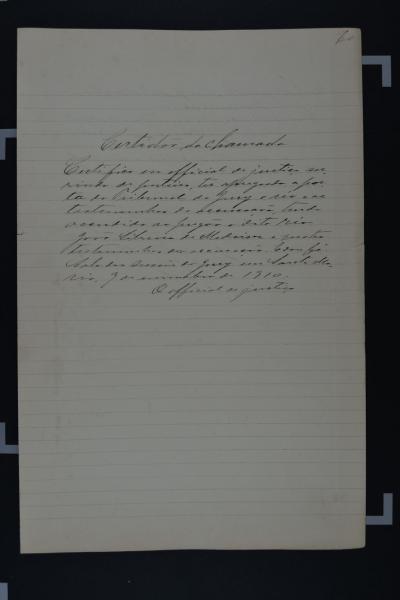 Certidão da chamada
Certifico eu official de justiça ser-
vindo de porteiro, ter apregoado a por-
ta do Tribunal do Jury o réo e as
testemunhas de accusação, tendo
accudido ao pregão o dito réo
João de Medeiros e quatro
testemunhas da accusação. Dou fé
Sala das Sessões do Jury em Santa Ma-
ria, 9 de novembro de 1910.
O official de justiça